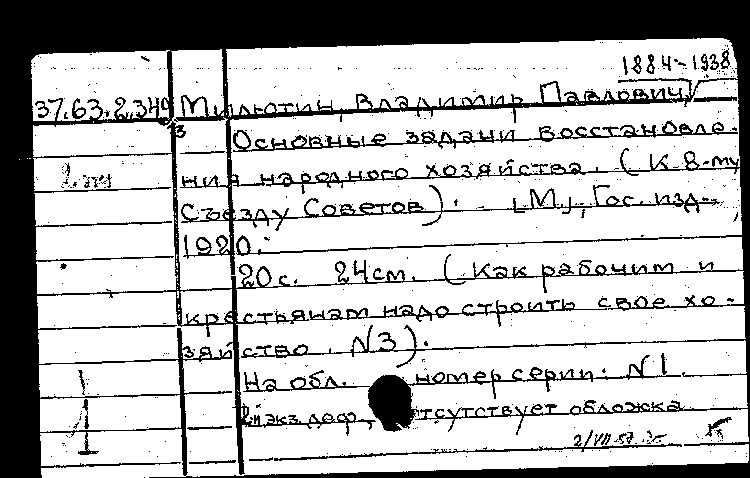 1884-1938
37.63.2.349 Милютин, Владимир Павлович
Основные задачи восстановле-
ния народного хозяйства. (К 8-му
Съезду Советов). [М], Гос. изд-,
1920.
20с. 24см. (Как рабочим и
крестьянам надо строить свое хо-
зяйство. N3).
На обл. номер серии: N1.
экз. деф., отсутствует обложка